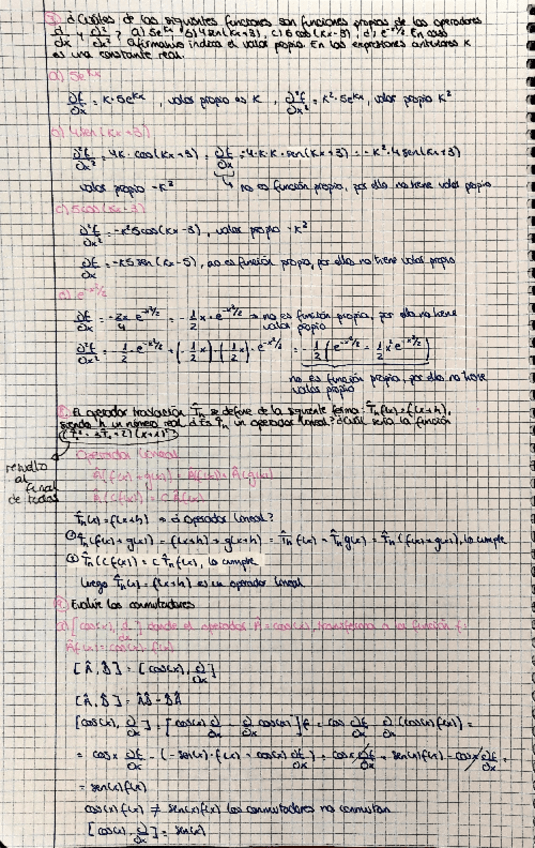 ¿Cuáles de las siguientes funciones son funciones propias de los operadores
d/dx y d²/dx²? a) 5e^kx, b) 4sen(kx+3), c) 5cos(kx-3), d) e^-x²/2. En caso
afirmativo indica el valor propio. En las expresiones anteriores k
es una constante real.
a) 5e^kx
∂f/∂x = k·5e^kx, valor propio es k, ∂²f/∂x² = k²·5e^kx, valor propio k²
b) 4sen(kx+3)
∂²f/∂x² = 4k·cos(kx+3) = ∂f/∂x = -4·k·k·sen(kx+3) = -k²·4sen(kx+3)
valor propio -k² no es función propia, por ello no tiene valor propio
c) 5cos(kx-3)
∂²f/∂x² = -k²5cos(kx-3), valor propio -k²
∂f/∂x = -k5sen(kx-5), no es función propia, por ello no tiene valor propio
d) e^-x²/2
∂f/∂x = -2x/4 e^-x²/2 = -1/2 x·e^-x²/2 → no es función propia, por ello no tiene
valor propio
∂²f/∂x² = -1/2·e^-x²/2 + (-1/2x)·(-1/2x)·e^-x²/2 = -1/2(e^-x²/2 - 1/2x²e^-x²/2)
no es función propia, por ello no tiene
valor propio
El operador traslación T̂h se define de la siguiente forma: T̂h f(x) = f(x+h),
siendo h un número real ¿Es T̂h un operador lineal? ¿Cuál sería la función
resuelto
al
final
de todas
Operador lineal
Â(f(x)+g(x)) = Âf(x)+Âg(x)
Â(Cf(x)) = CÂf(x)
T̂h(x) = f(x+h) → ¿Operador lineal?
① T̂h(f(x)+g(x)) = f(x+h)+g(x+h) = T̂h f(x) + T̂h g(x) = T̂h(f(x)+g(x)), lo cumple
② T̂h(Cf(x)) = C T̂h f(x), lo cumple
Luego T̂h(x) = f(x+h) es un operador lineal
Evalúe los conmutadores
a) [cos(x), d/dx] donde el operador Â = cos(x), transforma a la función f:
Âf(x) = cos(x)·f(x)
[Â, B̂] = [cos(x), ∂/∂x]
[Â, B̂] = ÂB̂ - B̂Â
[cos(x), ∂/∂x] = [cos(x) ∂/∂x - ∂/∂x cos(x)]f = cos ∂f/∂x - ∂/∂x(cos(x)f(x)) =
= cosx ∂f/∂x - (-sen(x)·f(x) + cos(x) ∂f/∂x) = cosx ∂f/∂x + sen(x)f(x) - cosx ∂f/∂x =
= sen(x)f(x)
cos(x)f(x) ≠ sen(x)f(x) los conmutadores no conmutan
[cos(x), ∂/∂x] = sen(x)